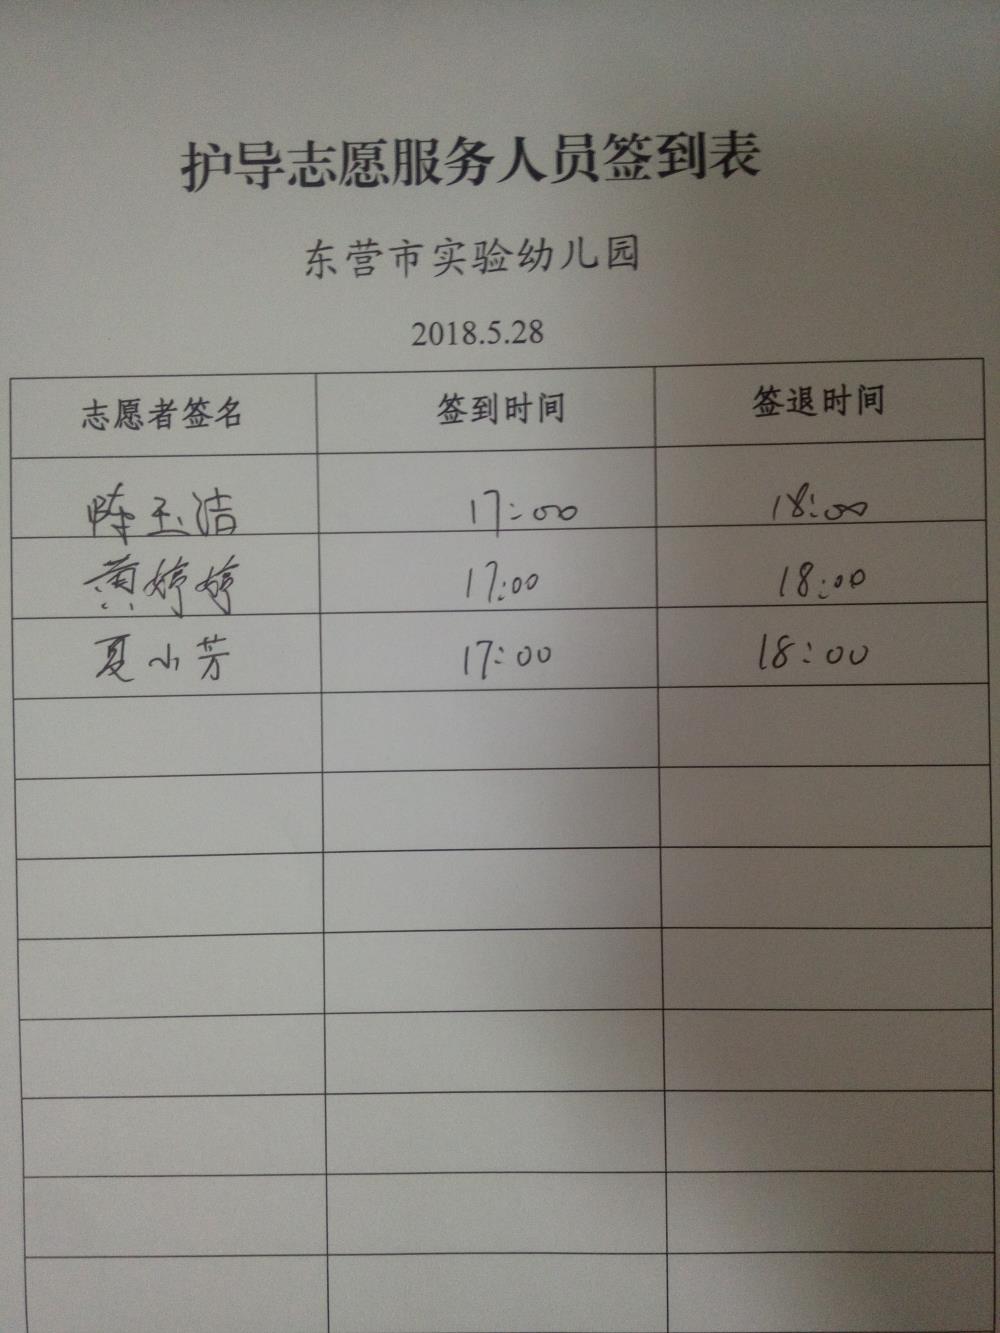 护导志愿服务人员签到表
东营市实验幼儿园
2018.5.28
志愿者签名 签到时间 签退时间
陈玉洁 17:00 18:00
黄婷婷 17:00 18:00
夏小芳 17:00 18:00